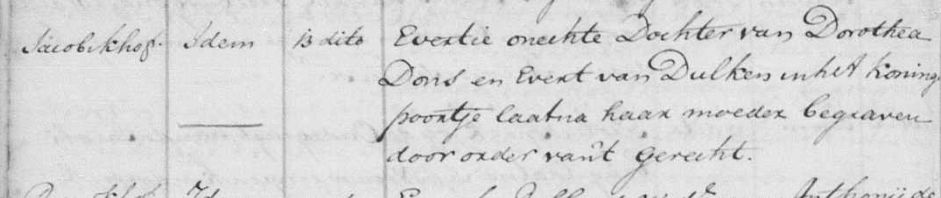 Jacobikhof. Idem 13 dito Evertie onechte Dochter van Dorothea
Doris en Evert van Dulken in het Koning
poortje laat na haar moeder begraven
door order van't Gerecht.
Idem